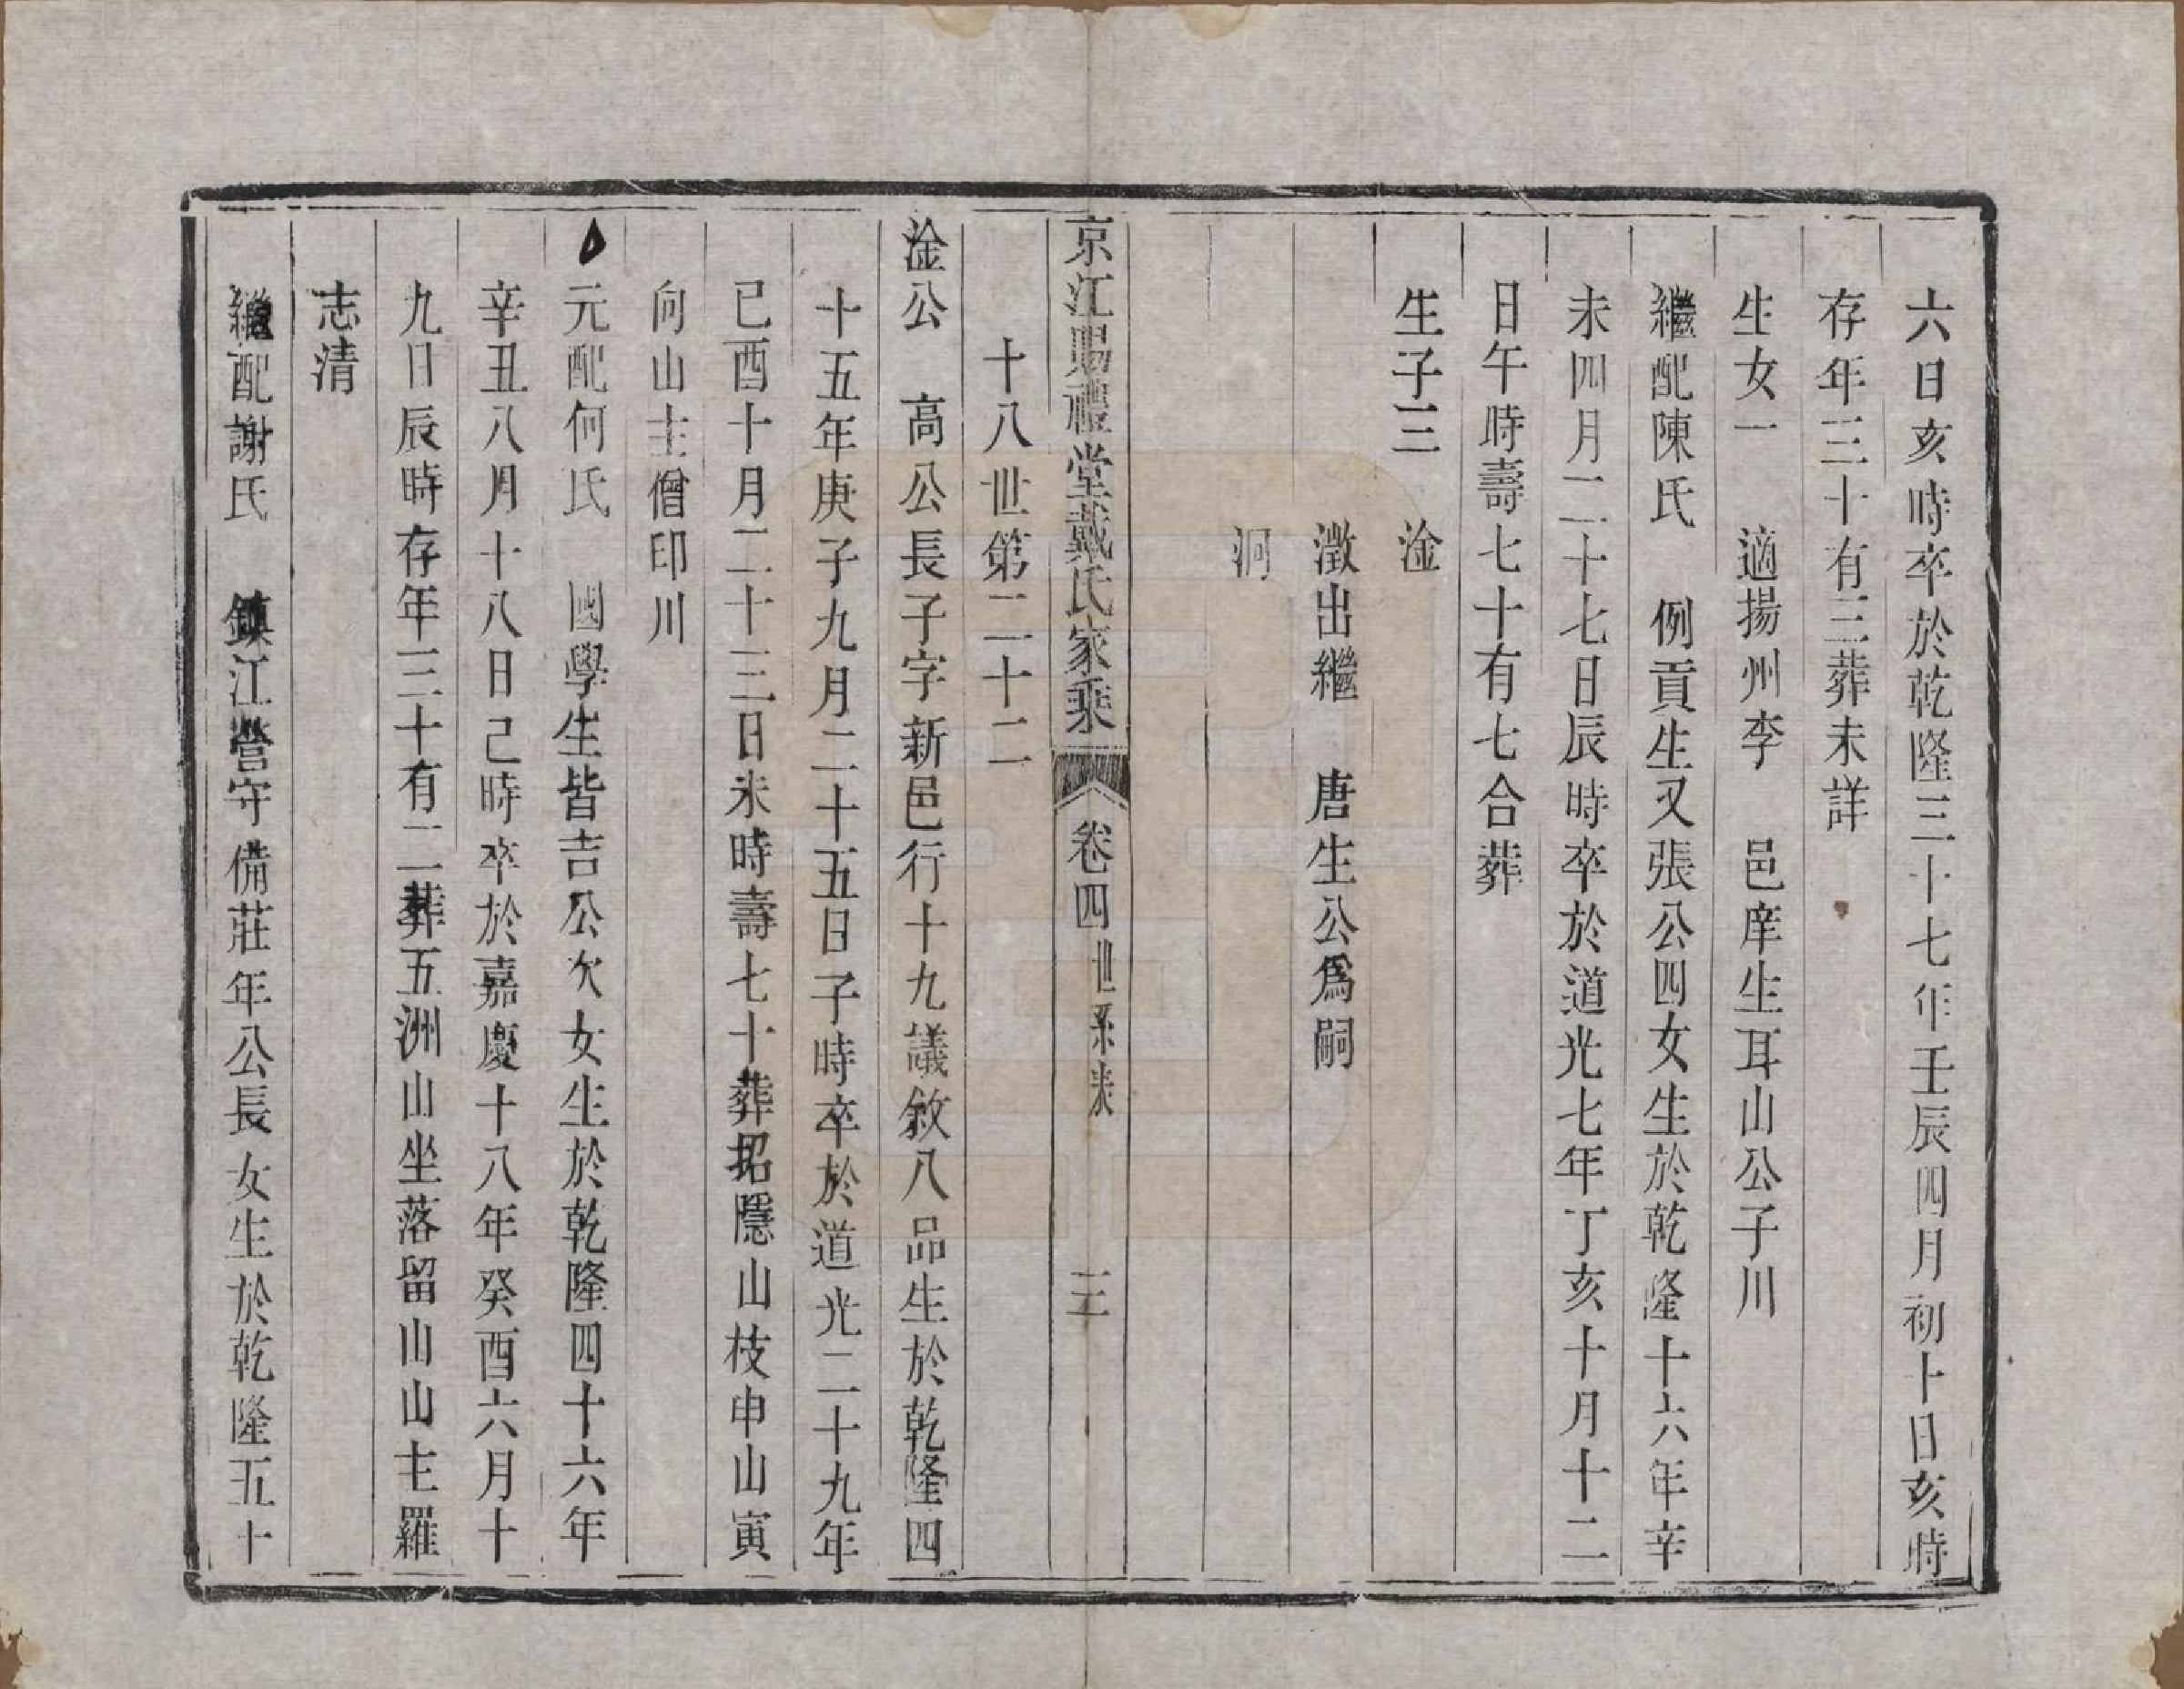 六日亥時卒於乾隆三十七年壬辰四月初十日亥時
存年三十有三葬未詳
生女一　適揚州李　邑庠生耳山公子川
繼配陳氏　例貢生又張公四女生於乾隆十六年辛
未四月二十七日辰時卒於道光七年丁亥十月十二
日午時壽七十有七合葬
生子三　淦
澂出繼　唐生公爲嗣
泂
京江賜禮堂戴氏家乘　卷四世系表　三
十八世第二十二
淦公　高公長子字新邑行十九議敘八品生於乾隆四
十五年庚子九月二十五日子時卒於道光二十九年
己酉十月二十三日未時壽七十葬招隱山枝申山寅
向山主僧印川
元配何氏　國學生皆吉公次女生於乾隆四十六年
辛丑八月十八日己時卒於嘉慶十八年癸酉六月十
九日辰時存年三十有二葬五洲山坐落留山山主羅
志清
繼配謝氏　鎮江營守備莊年公長女生於乾隆五十